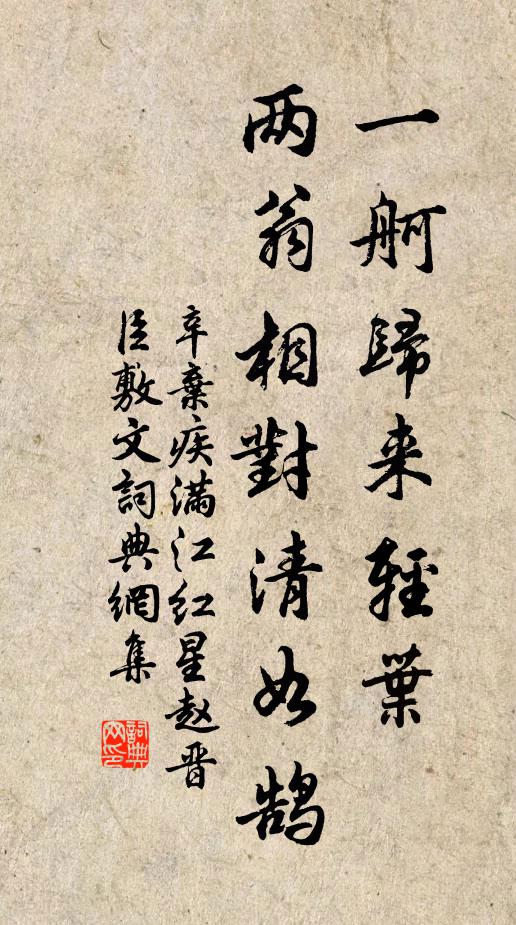 一舸歸来輕葉
两翁相對清如鹄
辛棄疾满江红呈赵晋
臣敷文詞典網集
詞典
网印